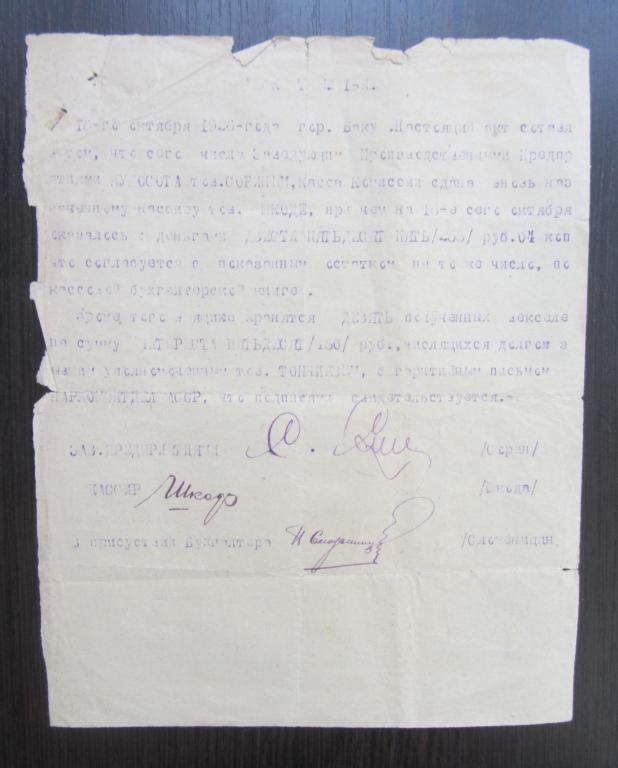 16-го октября 192 -года гор. Баку .Настоящий акт состав
в том, что сего числа Заведующим Производственными Предпр
ятиями тов.СОРИНЫМ, касса Комиссии сдана вновь наз
наченному кассиру тов. ШКОДЕ, при чем на 16-е сего октября
оказалось : деньгами ДВЕСТИ ПЯТЬДЕСЯТ ПЯТЬ/255/ руб.04 коп
что согласуется с показанным остатком на то же число, по
кассовой бухгалтерской книге .
Кроме того в ящике хранятся ДЕВЯТЬ полученных векселе
на сумму ЧЕТЫРЕСТА ПЯТЬДЕСЯТ/450/ руб.,числящихся долгом з
нашим уполномоченным тов. с гарантийным письмом
АССР, что подписями свидетельствуется.-
ЗАВ.ПРЕДПРИЯТИЯМИ /Сорин/
КАССИР Шкода /Шкода/
В присуствии Бухгалтера